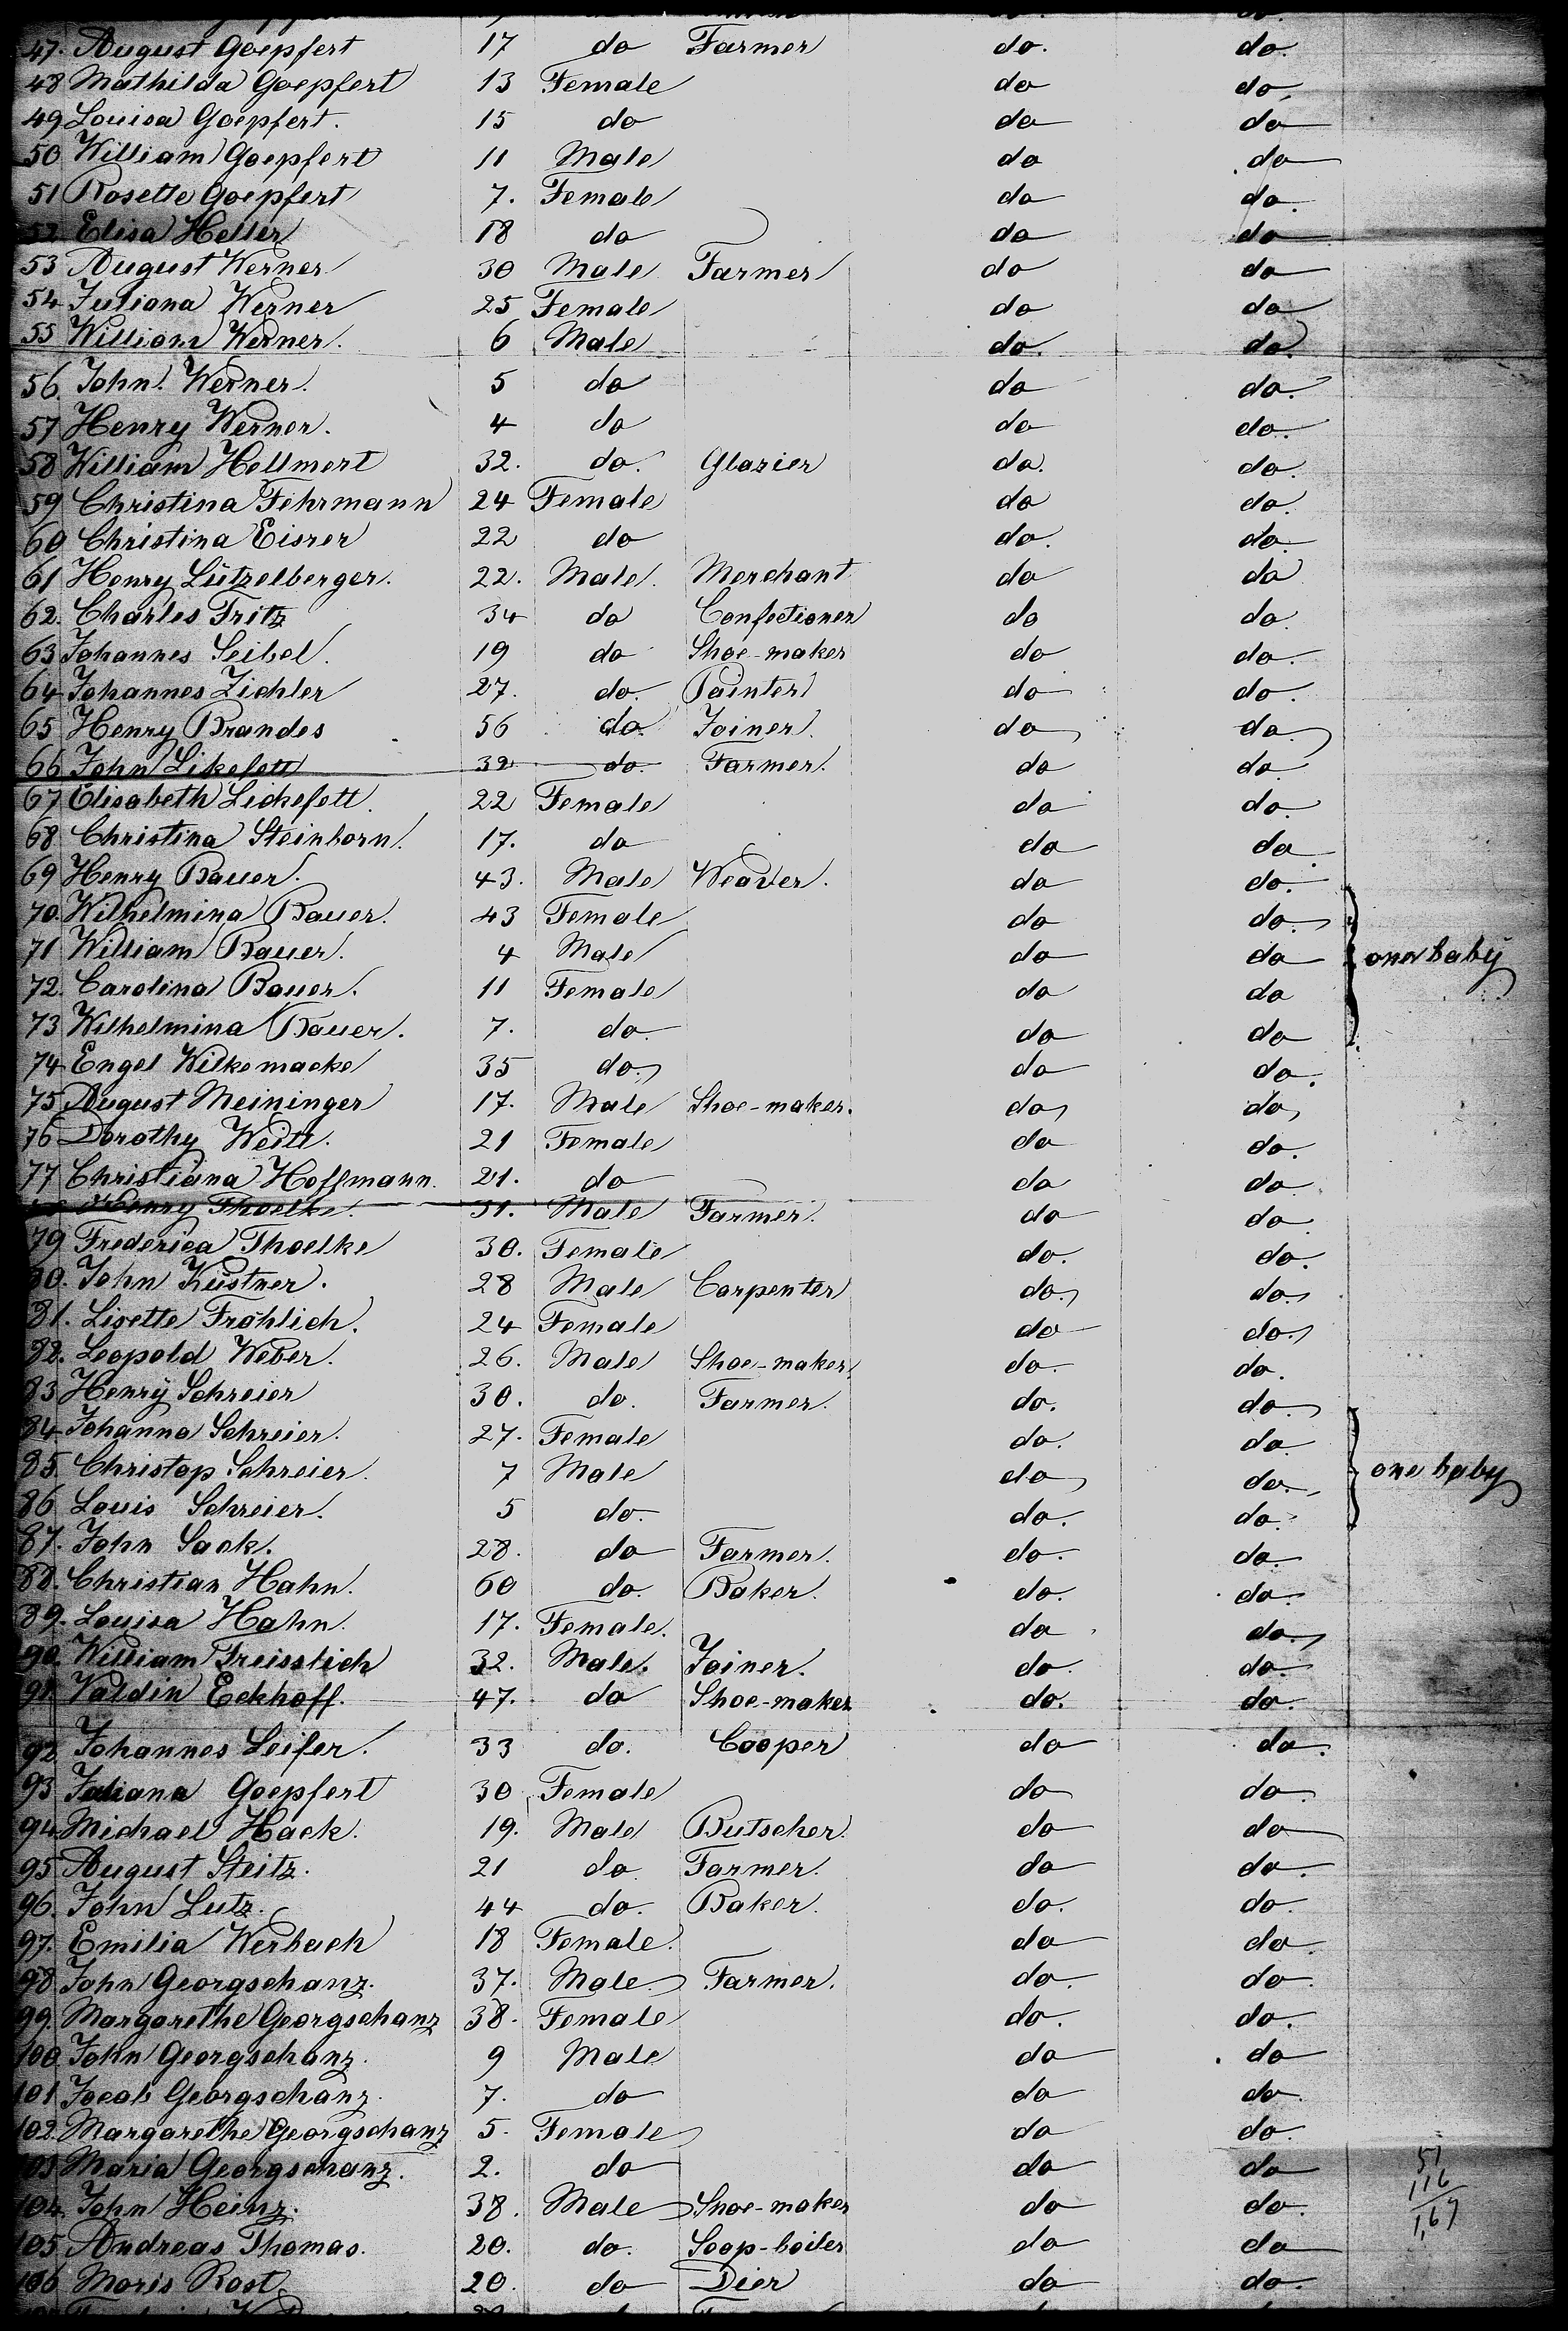 47. August Goepfert 17 do Farmer do. do.
48 Mathilda Goepfert 13 Female do do
49 Louisa Goepfert. 15 do do do
50 William Goepfert 11 Male do do
51 Rosette Goepfert 7. Female do do.
52 Elisa Heller 18 do do do
53 August Werner 30 Male Farmer do do
54 Juliana Werner 25 Female do do
55 William Werner. 6 Male do. do.
56. John Werner. 5 do do do.
57 Henry Werner. 4 do do do.
58 William Hellmert 32. do. Glazier do. do.
59 Christina Fehrmann 24 Female do do.
60 Christina Eisner 22 do do. do.
61 Henry Lützelberger. 22. Male. Merchant do do
62. Charles Fritz 34 do Confectioner do do.
63 Johannes Seibel. 19 do Shoe-maker do do.
64 Johannes Zichler 27. do. Painter do do.
65 Henry Brandes 56 do. Joiner. do do.
66 John Likefett 32 do. Farmer. do do.
67 Elisabeth Lickefett. 22 Female do do.
68 Christina Steinborn. 17. do do do.
69 Henry Bauer. 43. Male Weaver. do do.
70. Wilhelmina Bauer. 43 Female do do.
71 William Bauer. 4 Male do do one baby
72. Carolina Bauer. 11 Female do do
73 Wilhelmina Bauer. 7. do do do
74 Engel Wilkemacke 35 do. do do.
75 August Meininger 17. Male Shoe-maker. do do
76 Dorothy Weitt. 21 Female do do.
77 Christiana Hoffmann. 21. do do do.
Henry Thoelke. 31. Male Farmer. do do.
79 Frederica Thoelke 30. Female do. do.
80. John Küstner. 28 Male Carpenter do. do.
81. Lisette Fröhlich. 24 Female do do.
82. Leopold Weber. 26. Male Shoe-maker do. do.
83 Henry Schreier 30. do. Farmer. do. do.
84 Johanna Schreier. 27. Female do. do
85. Christop Schreier. 7 Male do do. one baby
86 Louis Schreier. 5 do. do. do.
87. John Sack. 28. do Farmer. do. do.
88. Christian Hahn. 60 do. Baker. do. do.
89. Louisa Hahn. 17. Female. do do.
90. William Freisslich 32. Male. Joiner. do. do.
91 Valdin Eckhoff. 47. do Shoe-maker do. do.
92 Johannes Leifer. 33 do. Cooper do do.
93 Juliana Goepfert 30 Female do do.
94 Michael Hack. 19. Male Butscher. do do
95 August Steitz. 21 do. Farmer. do do.
96. John Lutz. 44 do. Baker. do. do.
97. Emilia Werbach 18 Female. do do.
98 John Georgschanz. 37. Male Farmer. do. do.
99. Margarethe Georgschanz 38. Female do. do.
100. John Georgschanz. 9 Male do do
101 Jocab Georgschanz. 7. do do do.
102. Margarethe Georgschanz 5. Female do do.
103 Maria Georgschanz. 2. do do do 51
104. John Heinz. 38. Male Shoe-maker do do. 116
105 Andreas Thomas. 20. do. Soop-boiler do do 1,67
106 Moris Rost. 20. do Dier do do.